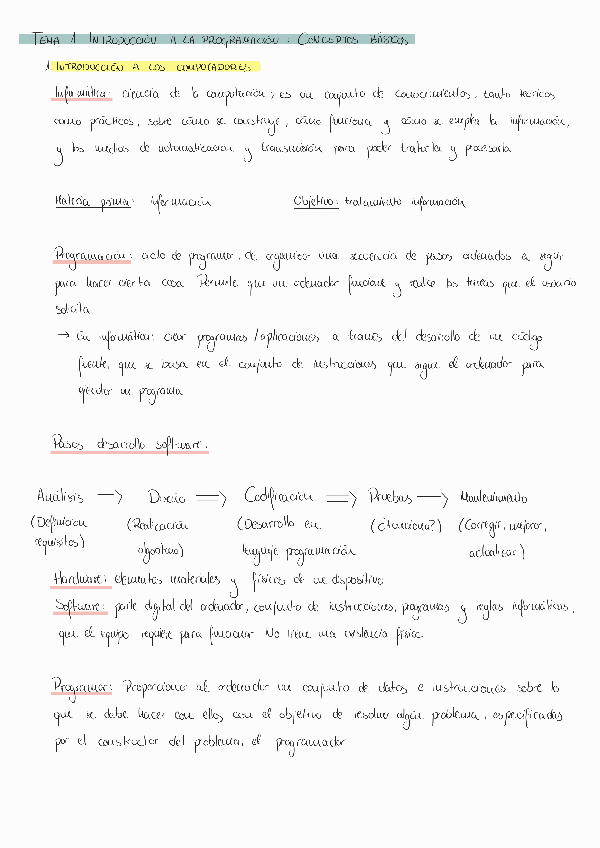 TEMA 1 INTRODUCCIÓN A LA PROGRAMACIÓN: CONCEPTOS BÁSICOS
1. INTRODUCCIÓN A LOS COMPUTADORES
Informática: ciencia de la computación; es un conjunto de conocimientos, tanto teóricos
como prácticos, sobre cómo se construye, cómo funciona y cómo se emplea la información,
y los medios de automatización y transmisión para poder tratarla y procesarla
Materia prima: información Objetivo: tratamiento información
Programación: ciclo de programar, de organizar una secuencia de pasos ordenados a seguir
para hacer cierta cosa. Permite que un ordenador funcione y realice las tareas que el usuario
solicita.
→ En informática: crear programas/aplicaciones a través del desarrollo de un código
fuente, que se basa en el conjunto de instrucciones que sigue el ordenador para
ejecutar un programa
Pasos desarrollo software:
Análisis → Diseño ⇒ Codificación ⇒ Pruebas → Mantenimiento
(Definición (Realización (Desarrollo en (¿funciona?) (Corregir, mejorar,
requisitos) algoritmo) lenguaje programación actualizar)
Hardware: elementos materiales y físicos de un dispositivo
Software: parte digital del ordenador, conjunto de instrucciones, programas y reglas informáticas,
que el equipo requiere para funcionar. No tiene una existencia física.
Programar: Proporcionar al ordenador un conjunto de datos e instrucciones sobre lo
que se debe hacer con ellos con el objetivo de resolver algún problema, especificadas
por el constructor del problema, el programador